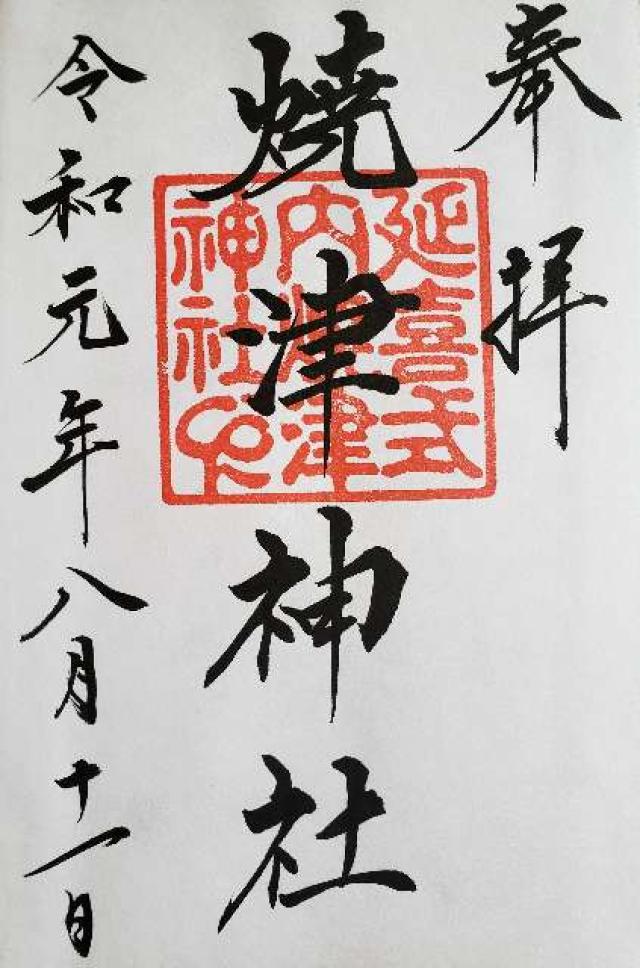 奉拝
焼津神社
延喜式
内焼津
神社之印
令和元年八月十一日